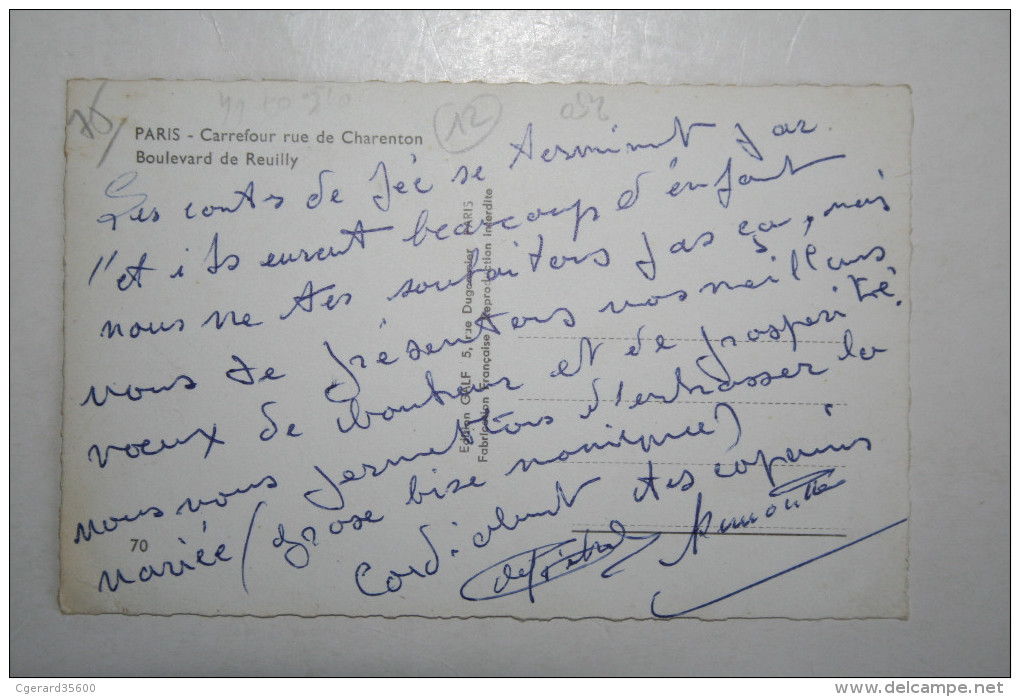 76
12
PARIS - Carrefour rue de Charenton
Boulevard de Reuilly
Les contes de feé se terminent par
"et ils eurent beaucoup d'enfant
nous ne tes souhaitons pas ça, mais
nous te présentons nos meilleurs
voeux de bonheur et de prosperité.
nous nous permettons d'embrasser la
mariée (grose bise monique)
Cordialement tes copains
Edition GALF 5, rue Dugommier PARIS
Fabrication Française Reproduction Interdite
70
Cgerard35600
www.delcampe.net